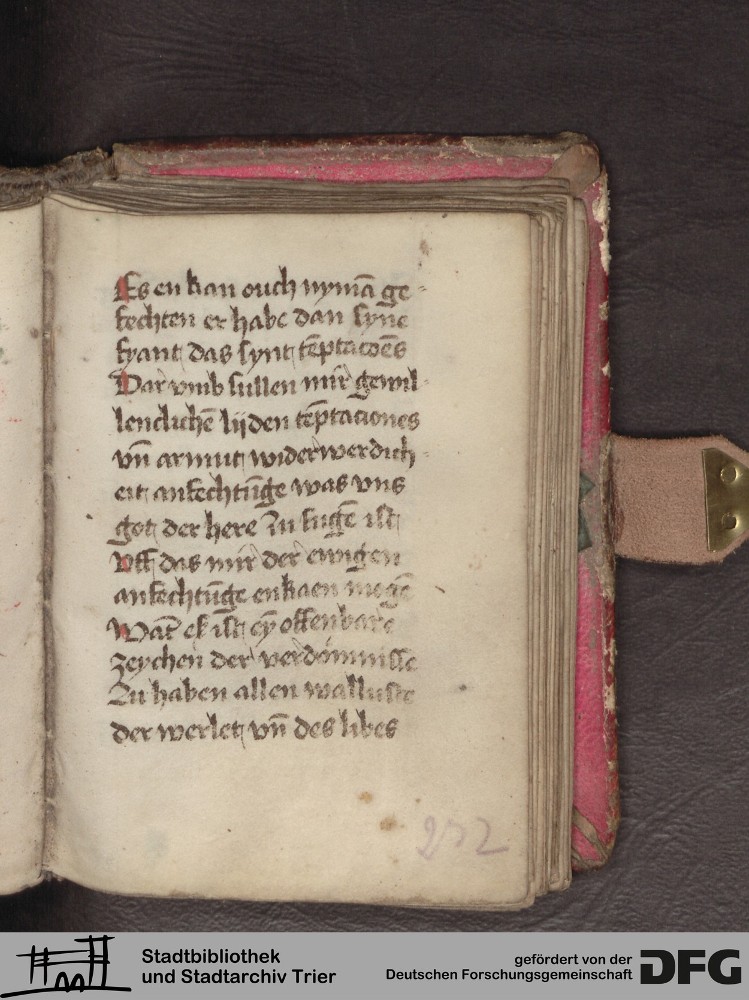 Es en kan ouch nymā ge-
fechten er habe dan syne
fyant das synt tēptacōēs
Dar vmb sullen mir gewil-
lenclichē lijden tēptaciones
vn̄ armut widerwerdich-
eit anfechtūge was vns
got der here zu fugē ist
vff das mir der ewigen
anfechtūge enkaen mogē
Wāt eß ist ey̅ offenbare
zeychen der verdomnisse
Zu haben allen walluste
der werlet vn̄ des libes
232
Stadtbibliothek
und Stadtarchiv Trier
gefördert von der
Deutschen Forschungsgemeinschaft
DFG